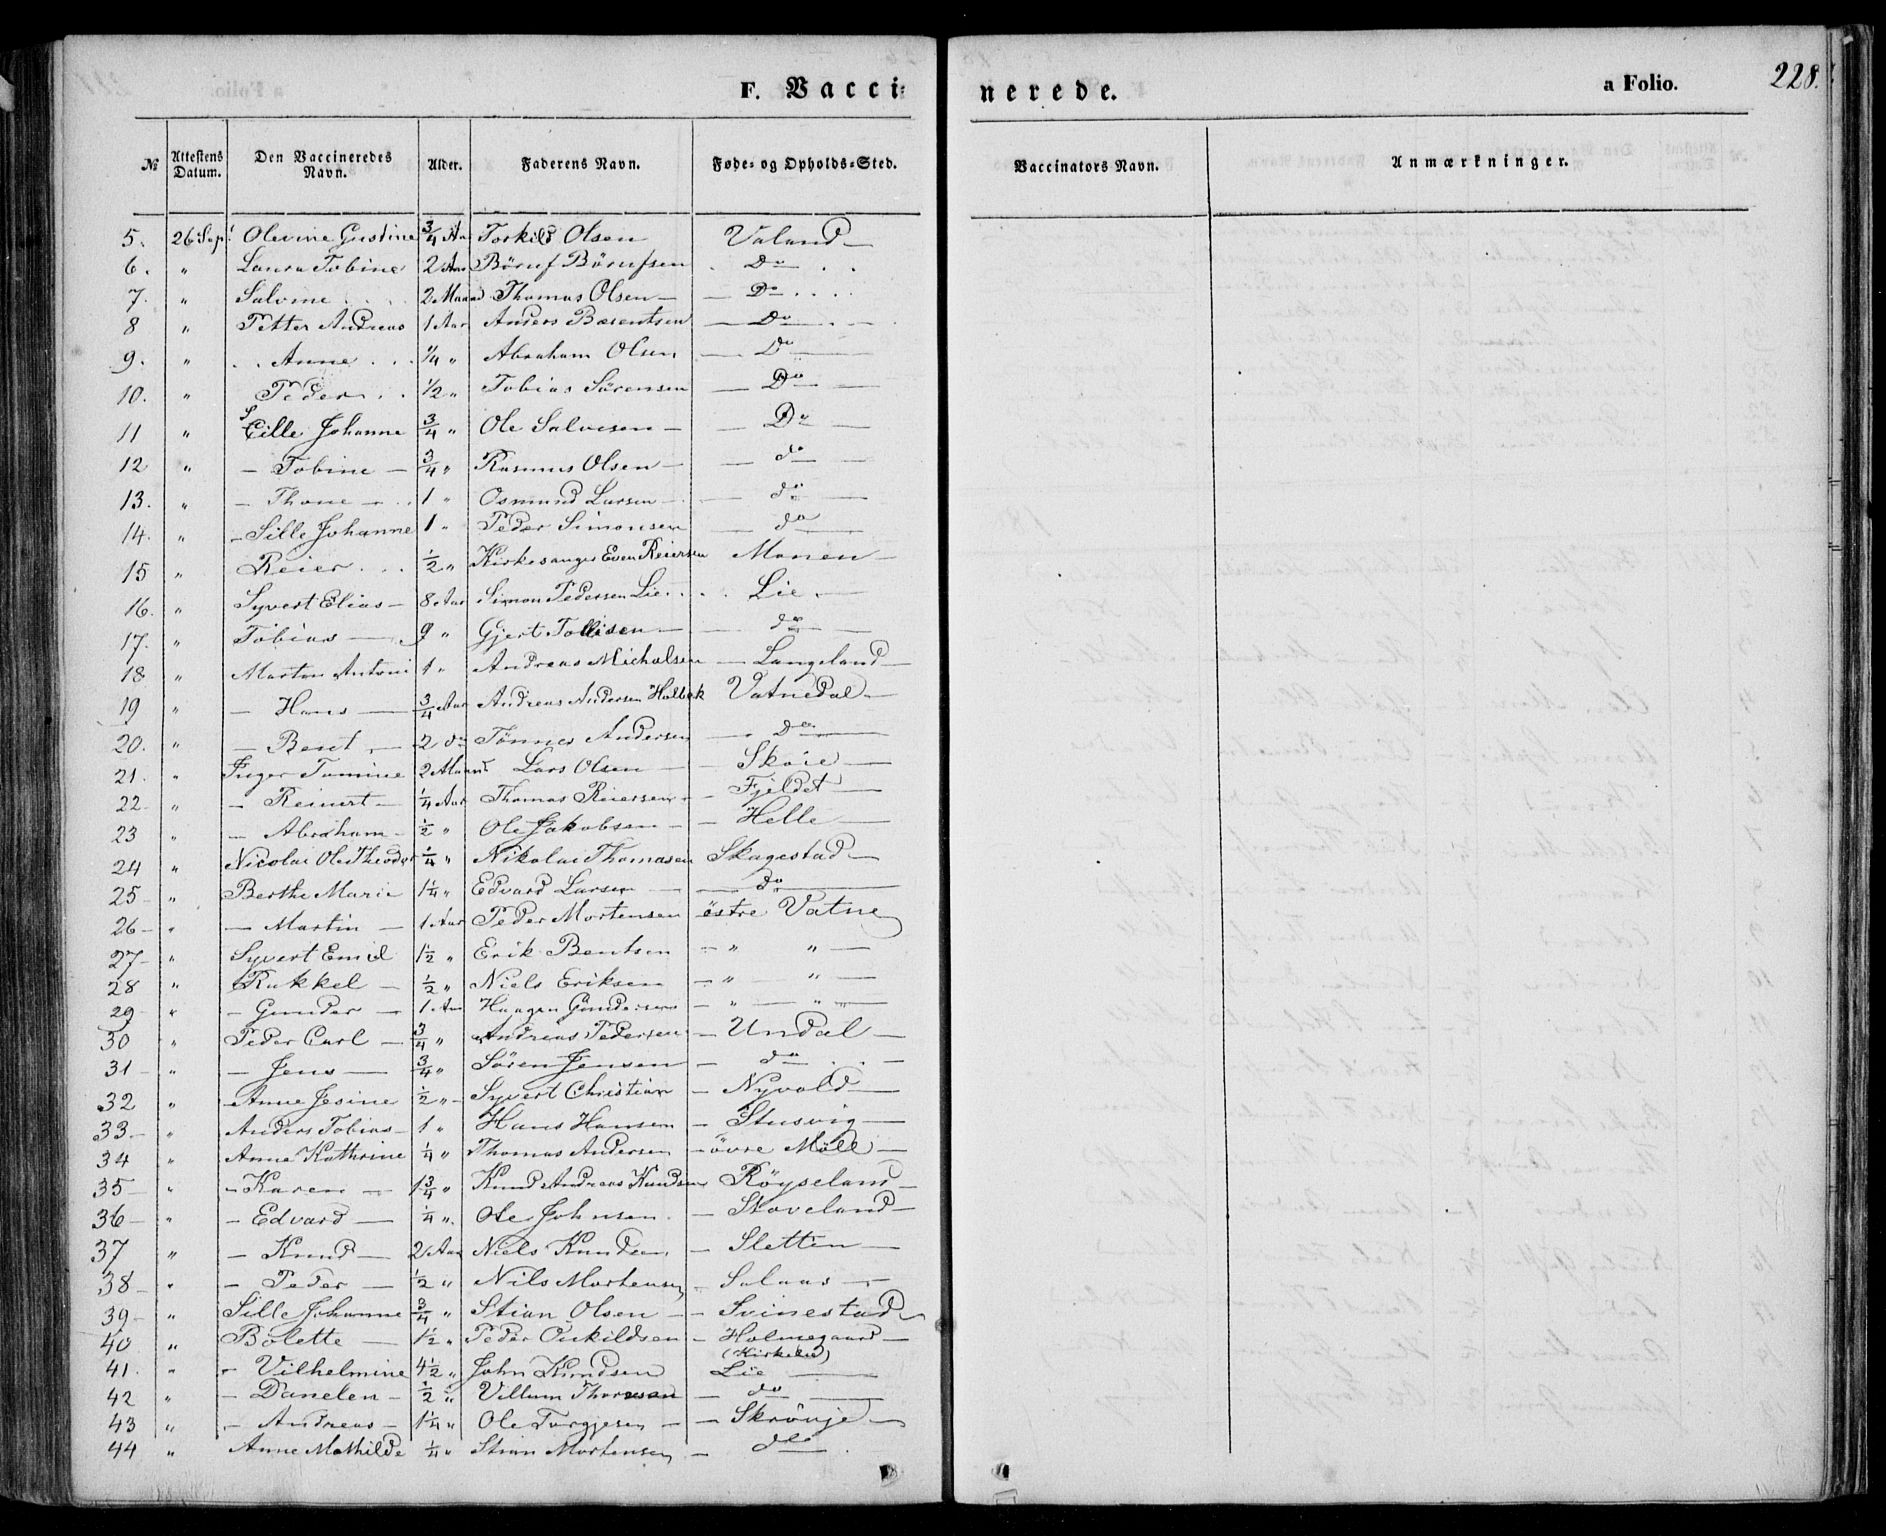 F. Vacci- nerede. a Folio. 228.
№ Attestens Datum. Den Vaccineredes Navn. Alder. Faderens Navn. Føde- og Opholds-Sted. Vaccinators Navn. Anmærkninger.
5. 26 Sept Olevine Gustine 3/4 Aar Torkild Olsen Valand
6. " Laura Tobine 2 Aar Böruf Börufsen Do
7. " Salvine 2 Maaned Thomas Olsen Do
8 " Petter Andreas 1 Aar Anders Barentsen Do
9. " Anne 1/4 " Abraham Olsen Do
10. " Peder 1/2 " Tobias Sörensen Do
11 " Cille Johanne 3/4 " Ole Salvesen Do
12 " Tobine 3/4 " Rasmus Olsen do
13. " Thone 1 " Osmund Larsen do
14. " Sille Johanne 1 " Peder Simonsen do
15 " Reier 1/2 " Kirkesanger Even Reiersen Monen
16. " Syvert Elias 8 Aar Simon Pedersen Lie Lie
17. " Tobias 9 " Gjert Tollisen do
18 " Morten Antoni 1 " Andreas Nicholsen Langeland
19 " Hans 3/4 Aar Andreas Andersen Holbek Vatnedal
20. " Bent 2 do Tönnes Andersen Do
21. " Inger Tomine 2 Maand Lars Olsen Skoie
22 " Reinert 1/4 Aar Thomas Reiersen Fjeldet
23 " Abraham 1/2 " Ole Jakobsen Helle
24 " Nicolai Ole Theodor 1/4 " Nikolai Thomasen Skagestad
25 " Berthe Marie 1 1/4 " Edvard Larsen do
26 " Martin 1 Aar Peder Mortensen östre Vatne
27 " Syvert Emil 1 1/2 " Erik Bentsen " "
28 " Rakkel 1/2 " Niels Eriksen " "
29 " Gunder 1 Aar Haagen Gundersen " "
30 " Peder Carl 3/4 " Andreas Pedersen Undal
31 " Jens 3/4 " Sören Jensen do
32 " Anne Jesine 1/2 " Syvert Christian Nyvold
33 " Anders Tobias 1 " Hans Hansen Stusvig
34 " Anne Kathrine 1/4 " Thomas Andersen övre Möll
35 " Karen 1 3/4 " Knud Andreas Knudsen Röyseland
36 " Edvard 1/4 " Ole Johnsen Stoveland
37 " Knud 2 Aar Niels Knudsen Sletten
38 " Peder 1/2 " Nils Mortensen Solaas
39 " Sille Johanne 3/4 " Stian Olsen Svinestad
40 " Bolette 1 1/2 " Peder Onkildsen Holmegaard
41. " Vilhelmine 4 1/2 " John Knudsen (Kirkelie) Lie
42 " Danelen 1/2 " Villum Thoresen do
43 " Andreas 1 1/4 " Ole Torgjesen Skrövje
44 " Anne Mathilde 1/4 " Stian Mortensen do